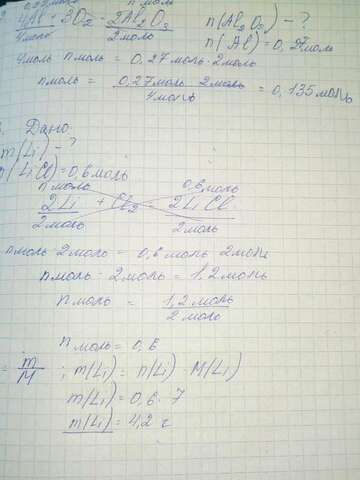 4Al + 3O₂ = 2Al₂O₃ n(Al₂O₃) - ?
4моль 2моль n(Al) = 0,27моль
4моль n моль = 0,27моль · 2моль
n моль = 0,27моль · 2моль / 4моль = 0,135моль
Дано
m(Li) - ?
n(LiCl) = 0,6моль
n моль 0,6моль
2Li + Cl₂ = 2LiCl
2моль 2моль
n моль · 2моль = 0,6моль · 2моль
n моль · 2моль = 1,2моль
n моль = 1,2моль / 2моль
n моль = 0,6
= m/M ; m(Li) = n(Li) · M(Li)
m(Li) = 0,6 · 7
m(Li) = 4,2 г